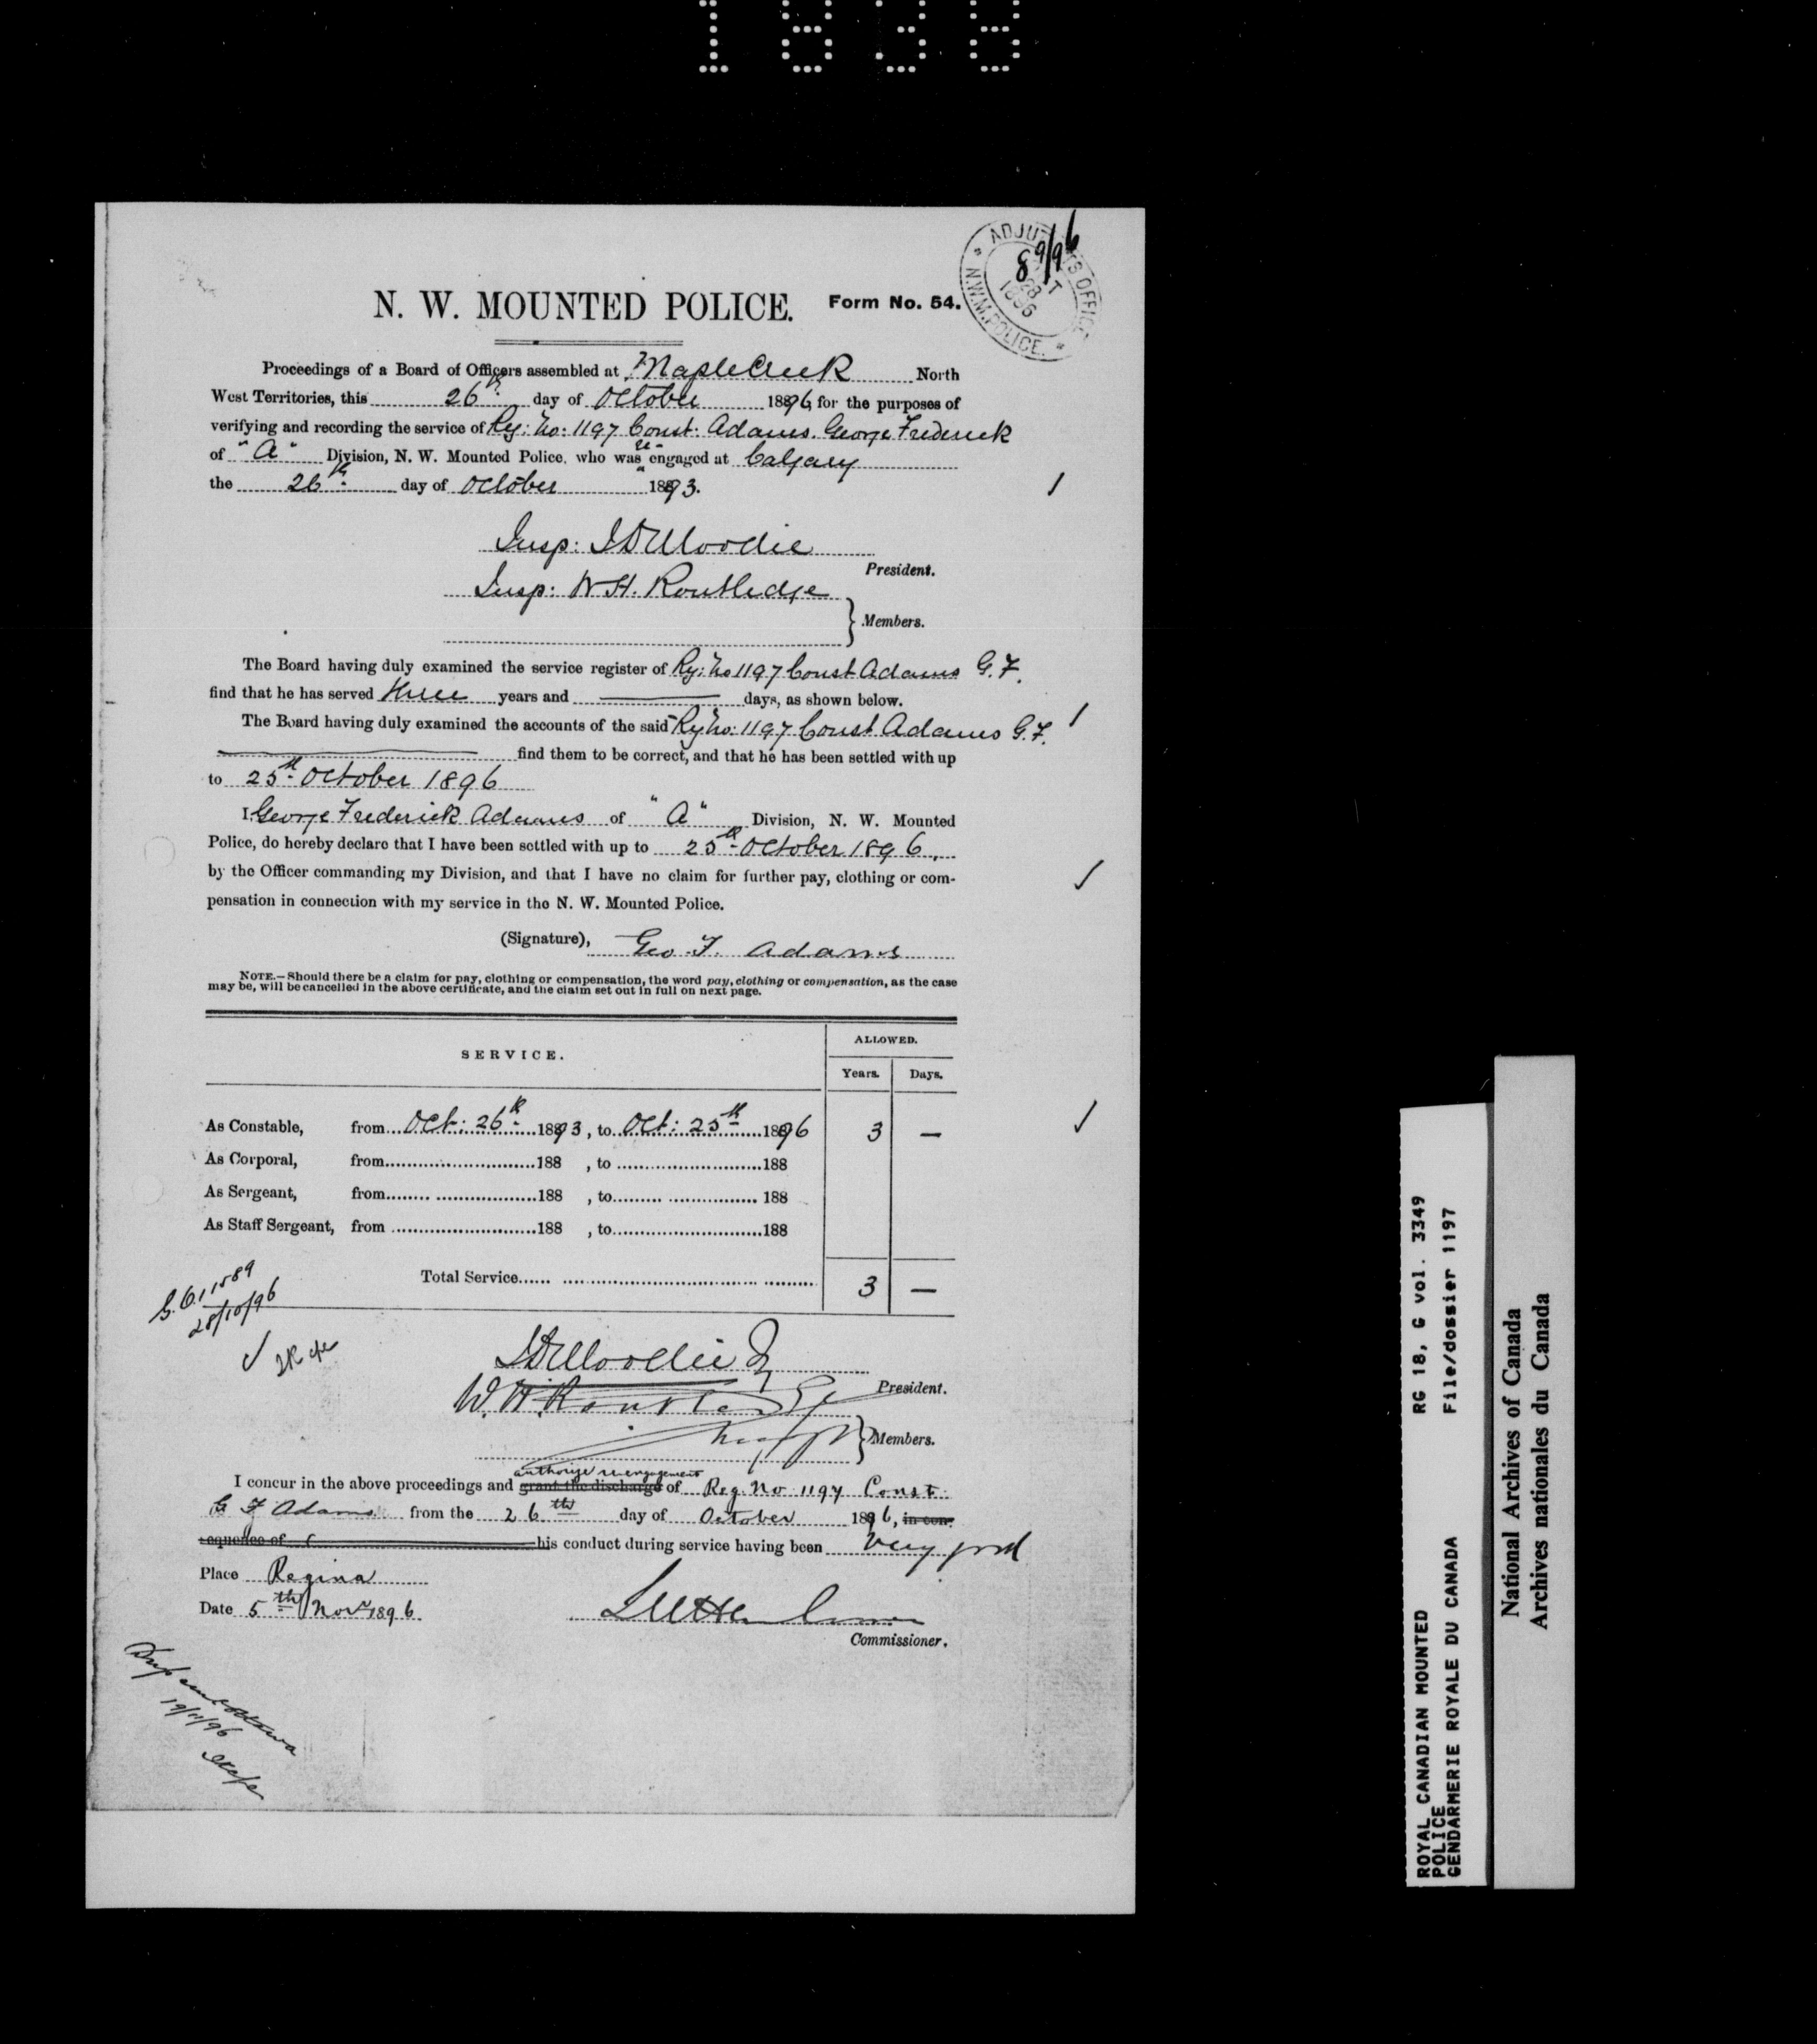 1838
ADJUTANTS OFFICE
N.W.M. POLICE.
OCT
28
1896
89/96
N. W. MOUNTED POLICE. Form No. 54.
Proceedings of a Board of Officers assembled at Maple Creek North
West Territories, this 26th day of October 1896, for the purposes of
verifying and recording the service of Reg: No: 1197 Const: Adams. George Frederick
of "A" Division, N. W. Mounted Police, who was re-engaged at Calgary
the 26th day of October 1893.
Insp: J D Moodie
President.
Insp: W H. Routledge
Members.
The Board having duly examined the service register of Reg: No 1197 Const Adams G. F.
find that he has served three years and days, as shown below.
The Board having duly examined the accounts of the said Reg No: 1197 Const Adams G. F.
find them to be correct, and that he has been settled with up
to 25th October 1896
I George Frederick Adams of "A" Division, N. W. Mounted
Police, do hereby declare that I have been settled with up to 25th October 1896,
by the Officer commanding my Division, and that I have no claim for further pay, clothing or com-
pensation in connection with my service in the N. W. Mounted Police.
(Signature), Geo. F. Adams
NOTE.—Should there be a claim for pay, clothing or compensation, the word pay, clothing or compensation, as the case
may be, will be cancelled in the above certificate, and the claim set out in full on next page.
SERVICE. ALLOWED.
Years. Days.
As Constable, from Oct: 26th 1893, to Oct: 25th 1896 3 —
As Corporal, from 188 , to 188
As Sergeant, from 188 , to 188
As Staff Sergeant, from 188 , to 188
Total Service 3 —
G.O. 11589
28/10/96
J D Moodie
President.
W. H. Routledge
Insp
Members.
authorize re-engagement
I concur in the above proceedings and grant the discharge of Reg. No 1197 Const.
G F Adams from the 26th day of October 1896, in con-
sequence of his conduct during service having been Very good
Place Regina
Date 5th Novr 1896.
Commissioner.
19/11/96
ROYAL CANADIAN MOUNTED
POLICE
GENDARMERIE ROYALE DU CANADA
RG 18, G vol. 3349
File/dossier 1197
National Archives of Canada
Archives nationales du Canada